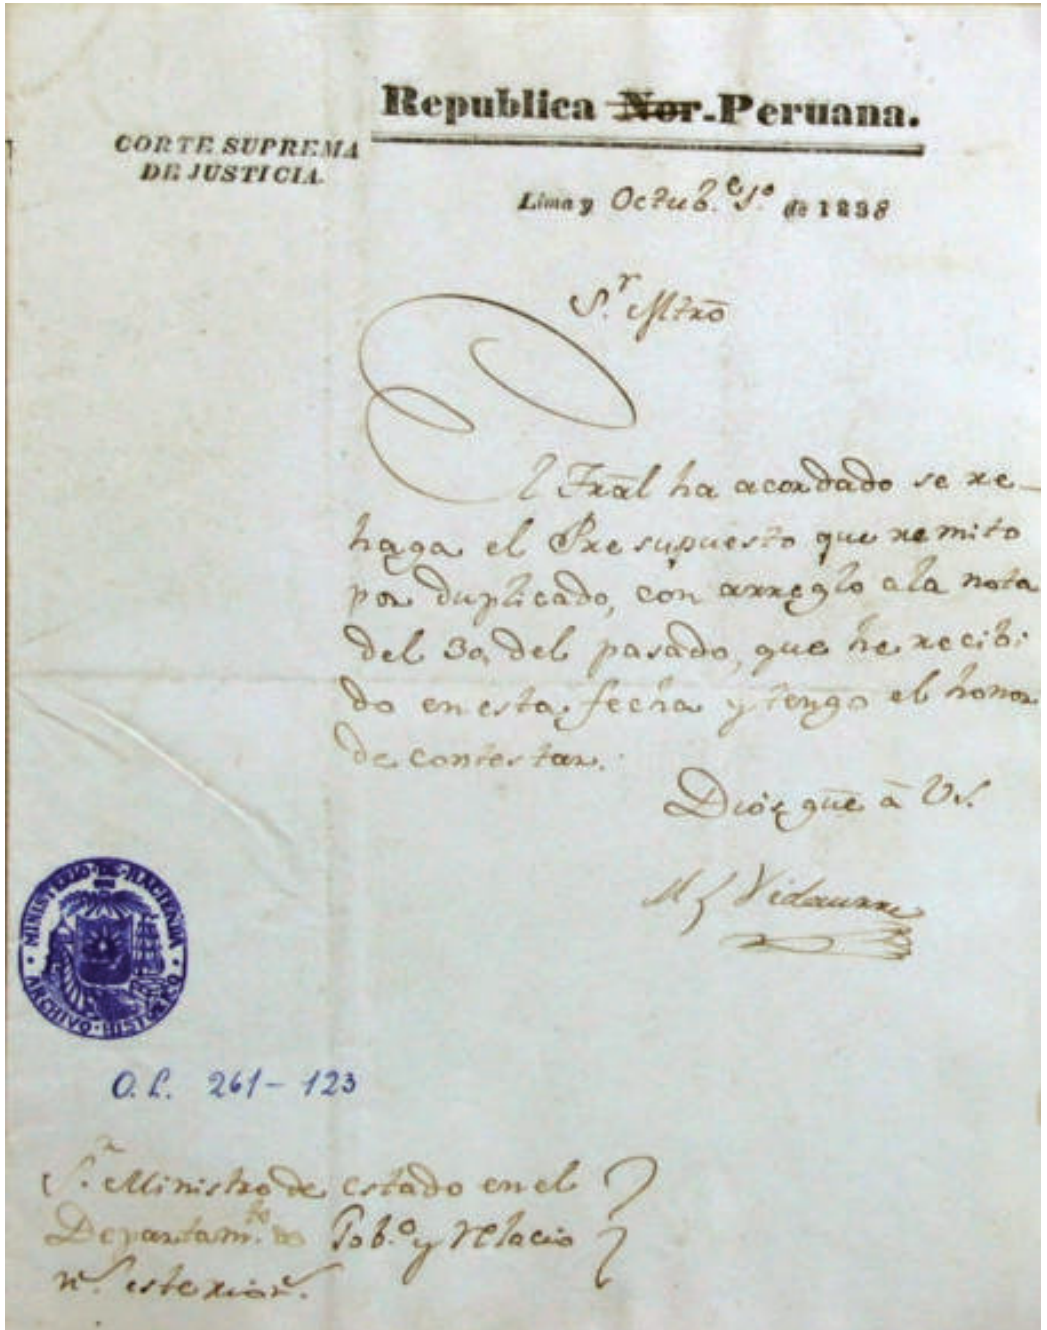 Republica Nor-Peruana.
CORTE SUPREMA
DE JUSTICIA.
Lima y Octub.e 1.o de 1838
S.r Mtrō
El Tral ha acordado se re-
haga el Presupuesto que remito
por duplicado, con arreglo a la nota
del 30, del pasado, que he recibi-
do en esta fecha y tengo el honor
de contestar.
Dios gūe ā VS.
M L Vidaurre
MINISTERIO·DE·HACIENDA
·ARCHIVO·HISTORICO·
O. L. 261 - 123
S.r Ministro de estado en el
Departam.to de Gob.o y Relacio
n.s esterior.s